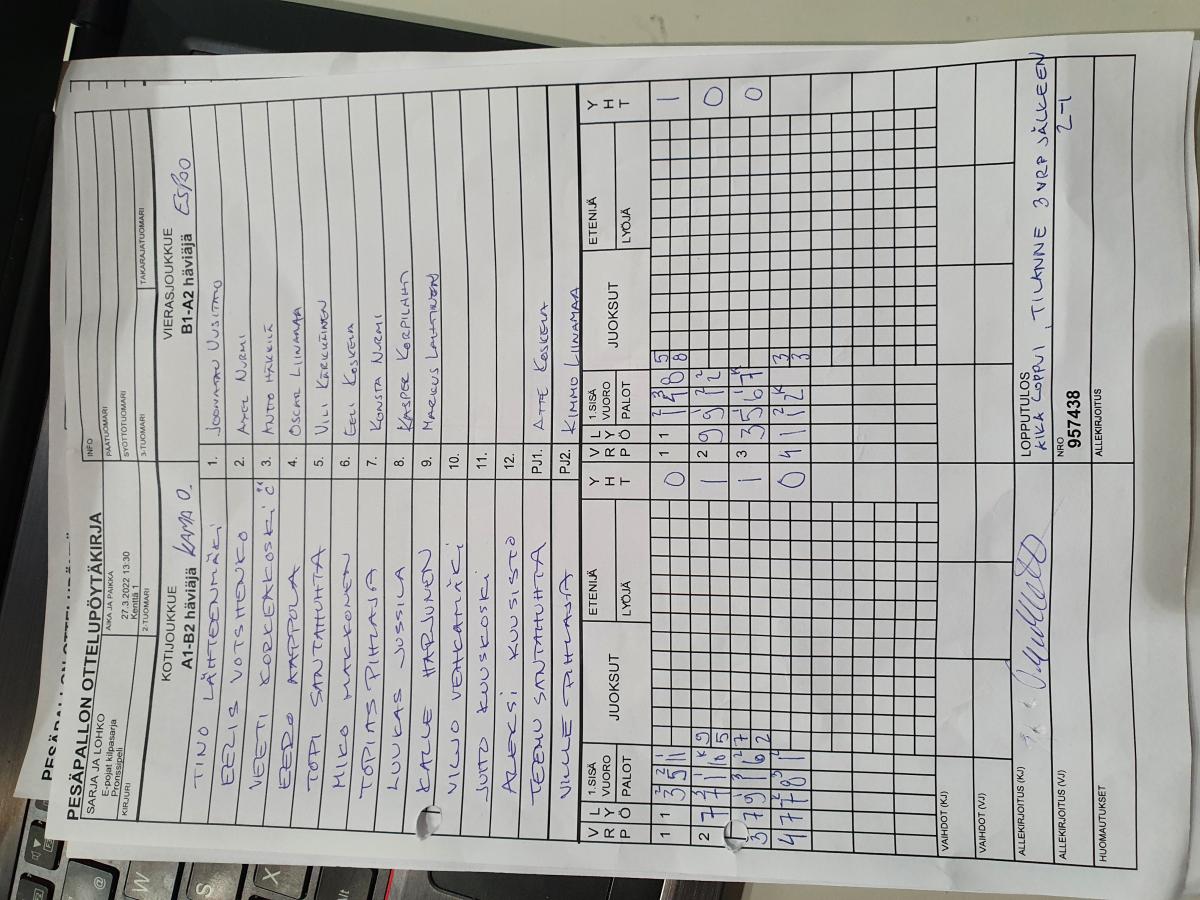 PESÄPALLON OTTELUPÖYTÄKIRJA
SARJA JA LOHKO
E-pojat kilpasarja
Pronssipeli
KIRJURI
AIKA JA PAIKKA
27.3.2022 13:30
Kenttä 1
2-TUOMARI
INFO
PÄÄTUOMARI
SYÖTTÖTUOMARI
3-TUOMARI
TAKARAJATUOMARI
KOTIJOUKKUE
A1-B2 häviäjä KAMA O.
VIERASJOUKKUE
B1-A2 häviäjä ESPOO
TINO LÄHTEENMÄKI 1. JOONATAN UUSITALO
EELIS VOTSHENKO 2. AXEL NURMI
VEETI KORKEAKOSKI 3. ANTTO HÄKKIÄ
EEDO AAPPOLA 4. OSCAR LIINAMAA
TOPI SANTAHUHTA 5. VILI KÄRKKÄINEN
MIKO MAKKONEN 6. EELI KOSKELA
TOPIAS PIHLAJA 7. KONSTA NURMI
LUUKAS JUSSILA 8. KASPER KORPILAHTI
KALLE HARJUNEN 9. MARKUS LAHTINEN
VILJO VEHKAMÄKI 10.
JUHO KUUSKOSKI 11.
ALEKSI KUUSISTO 12.
TEEMU SANTAHUHTA PJ1. ATTE KOSKELA
VILLE PIHLAJA PJ2. KIMMO LIINAMAA
V R L Y P Ö 1.SISÄ VUORO PALOT JUOKSUT ETENIJÄ LYÖJÄ Y H T
V R L Y P Ö 1.SISÄ VUORO PALOT JUOKSUT ETENIJÄ LYÖJÄ Y H T
1 1 3 5 11 0
1 1 1 4 8 5 8 1
2 7 7 1 8 9 5 1
2 9 9 1 2 0
3 7 9 1 6 7 2 1
3 3 5 6 7 0
4 7 7 8 1 0
4 1 1 2 3 3
VAIHDOT (KJ)
VAIHDOT (VJ)
ALLEKIRJOITUS (KJ)
ALLEKIRJOITUS (VJ)
HUOMAUTUKSET
LOPPUTULOS
AIKA LOPPUI, TILANNE 3 VRP JÄLKEEN
2-1
NRO
957438
ALLEKIRJOITUS